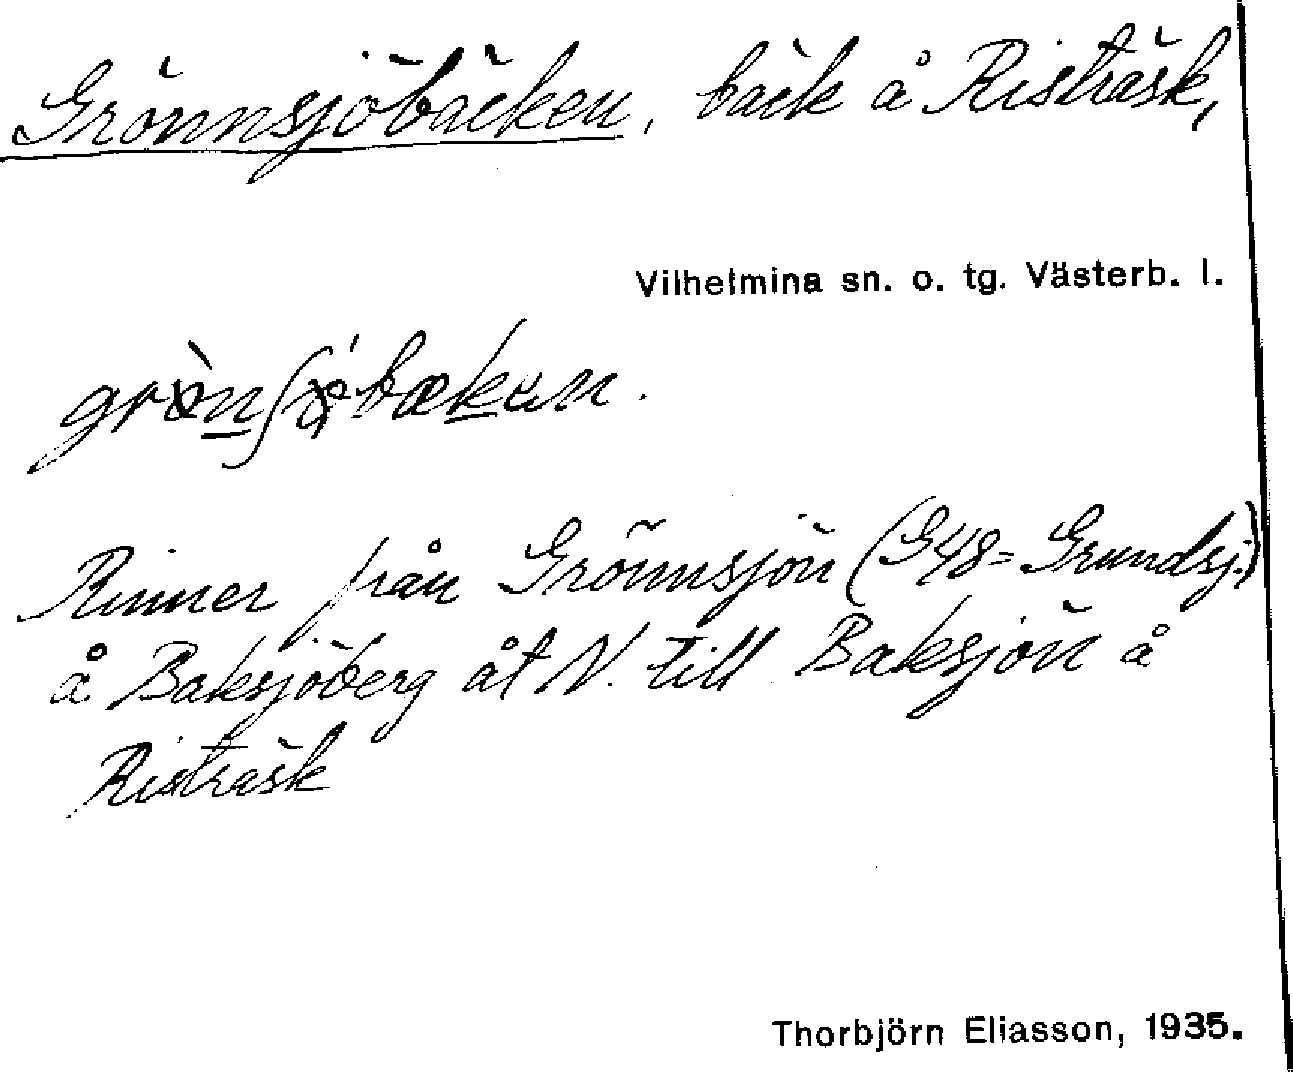 Grönnsjöbäcken, bäck å Risträsk,
Vilhelmina sn. o. tg. Västerb. l.
Rinner från Grönnsjön (G48 = Grundsj.)
å Baksjöberg åt N. till Baksjön å
Risträsk
Thorbjörn Eliasson, 1935.